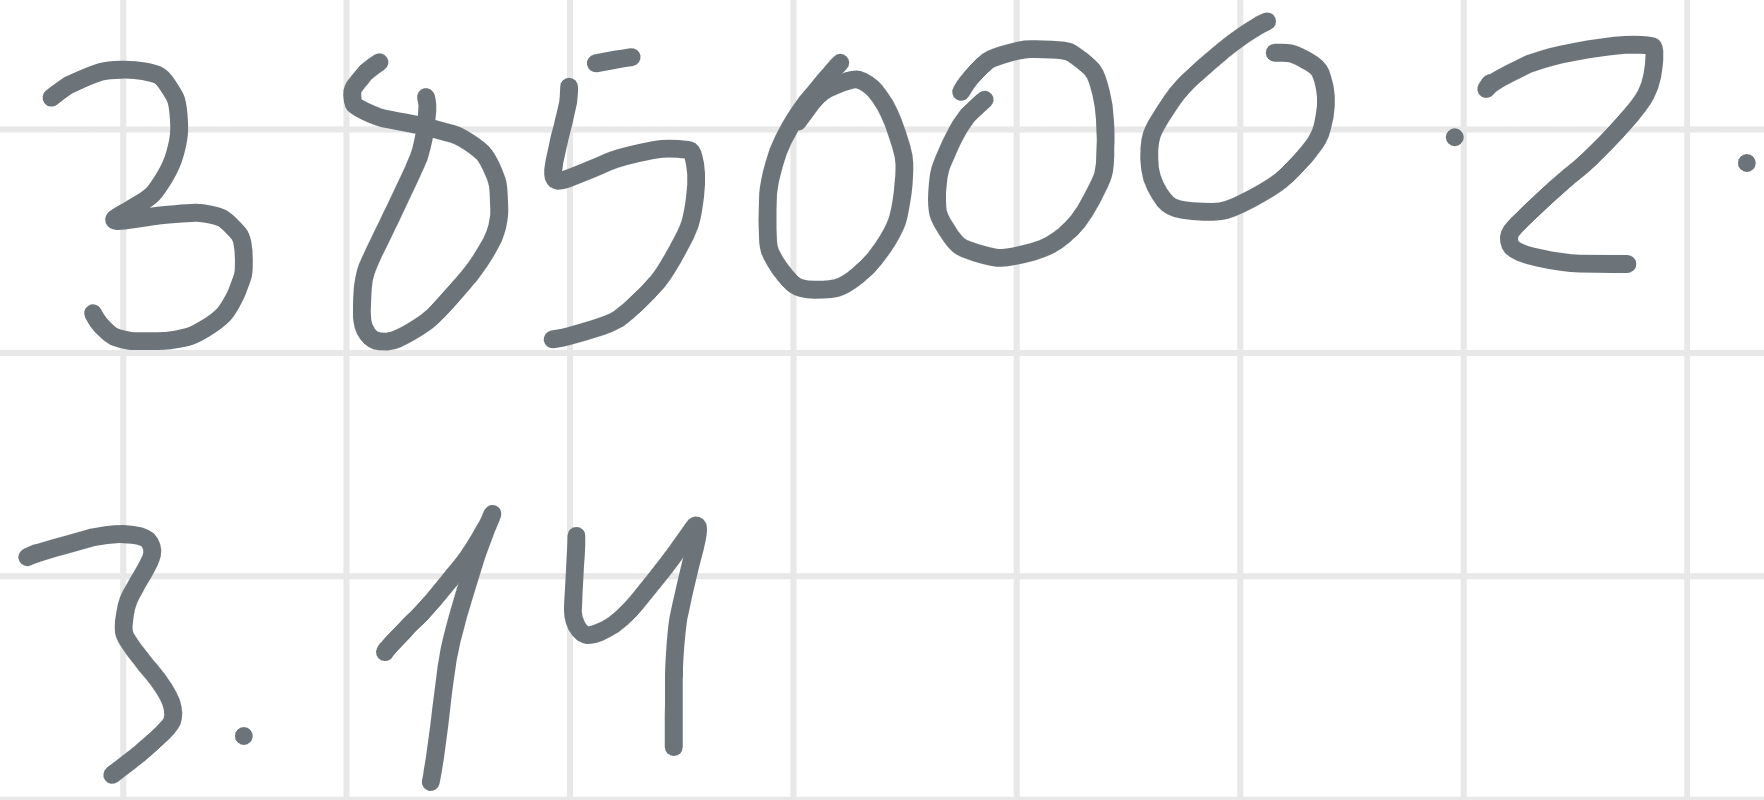 3850000·2·
3.14